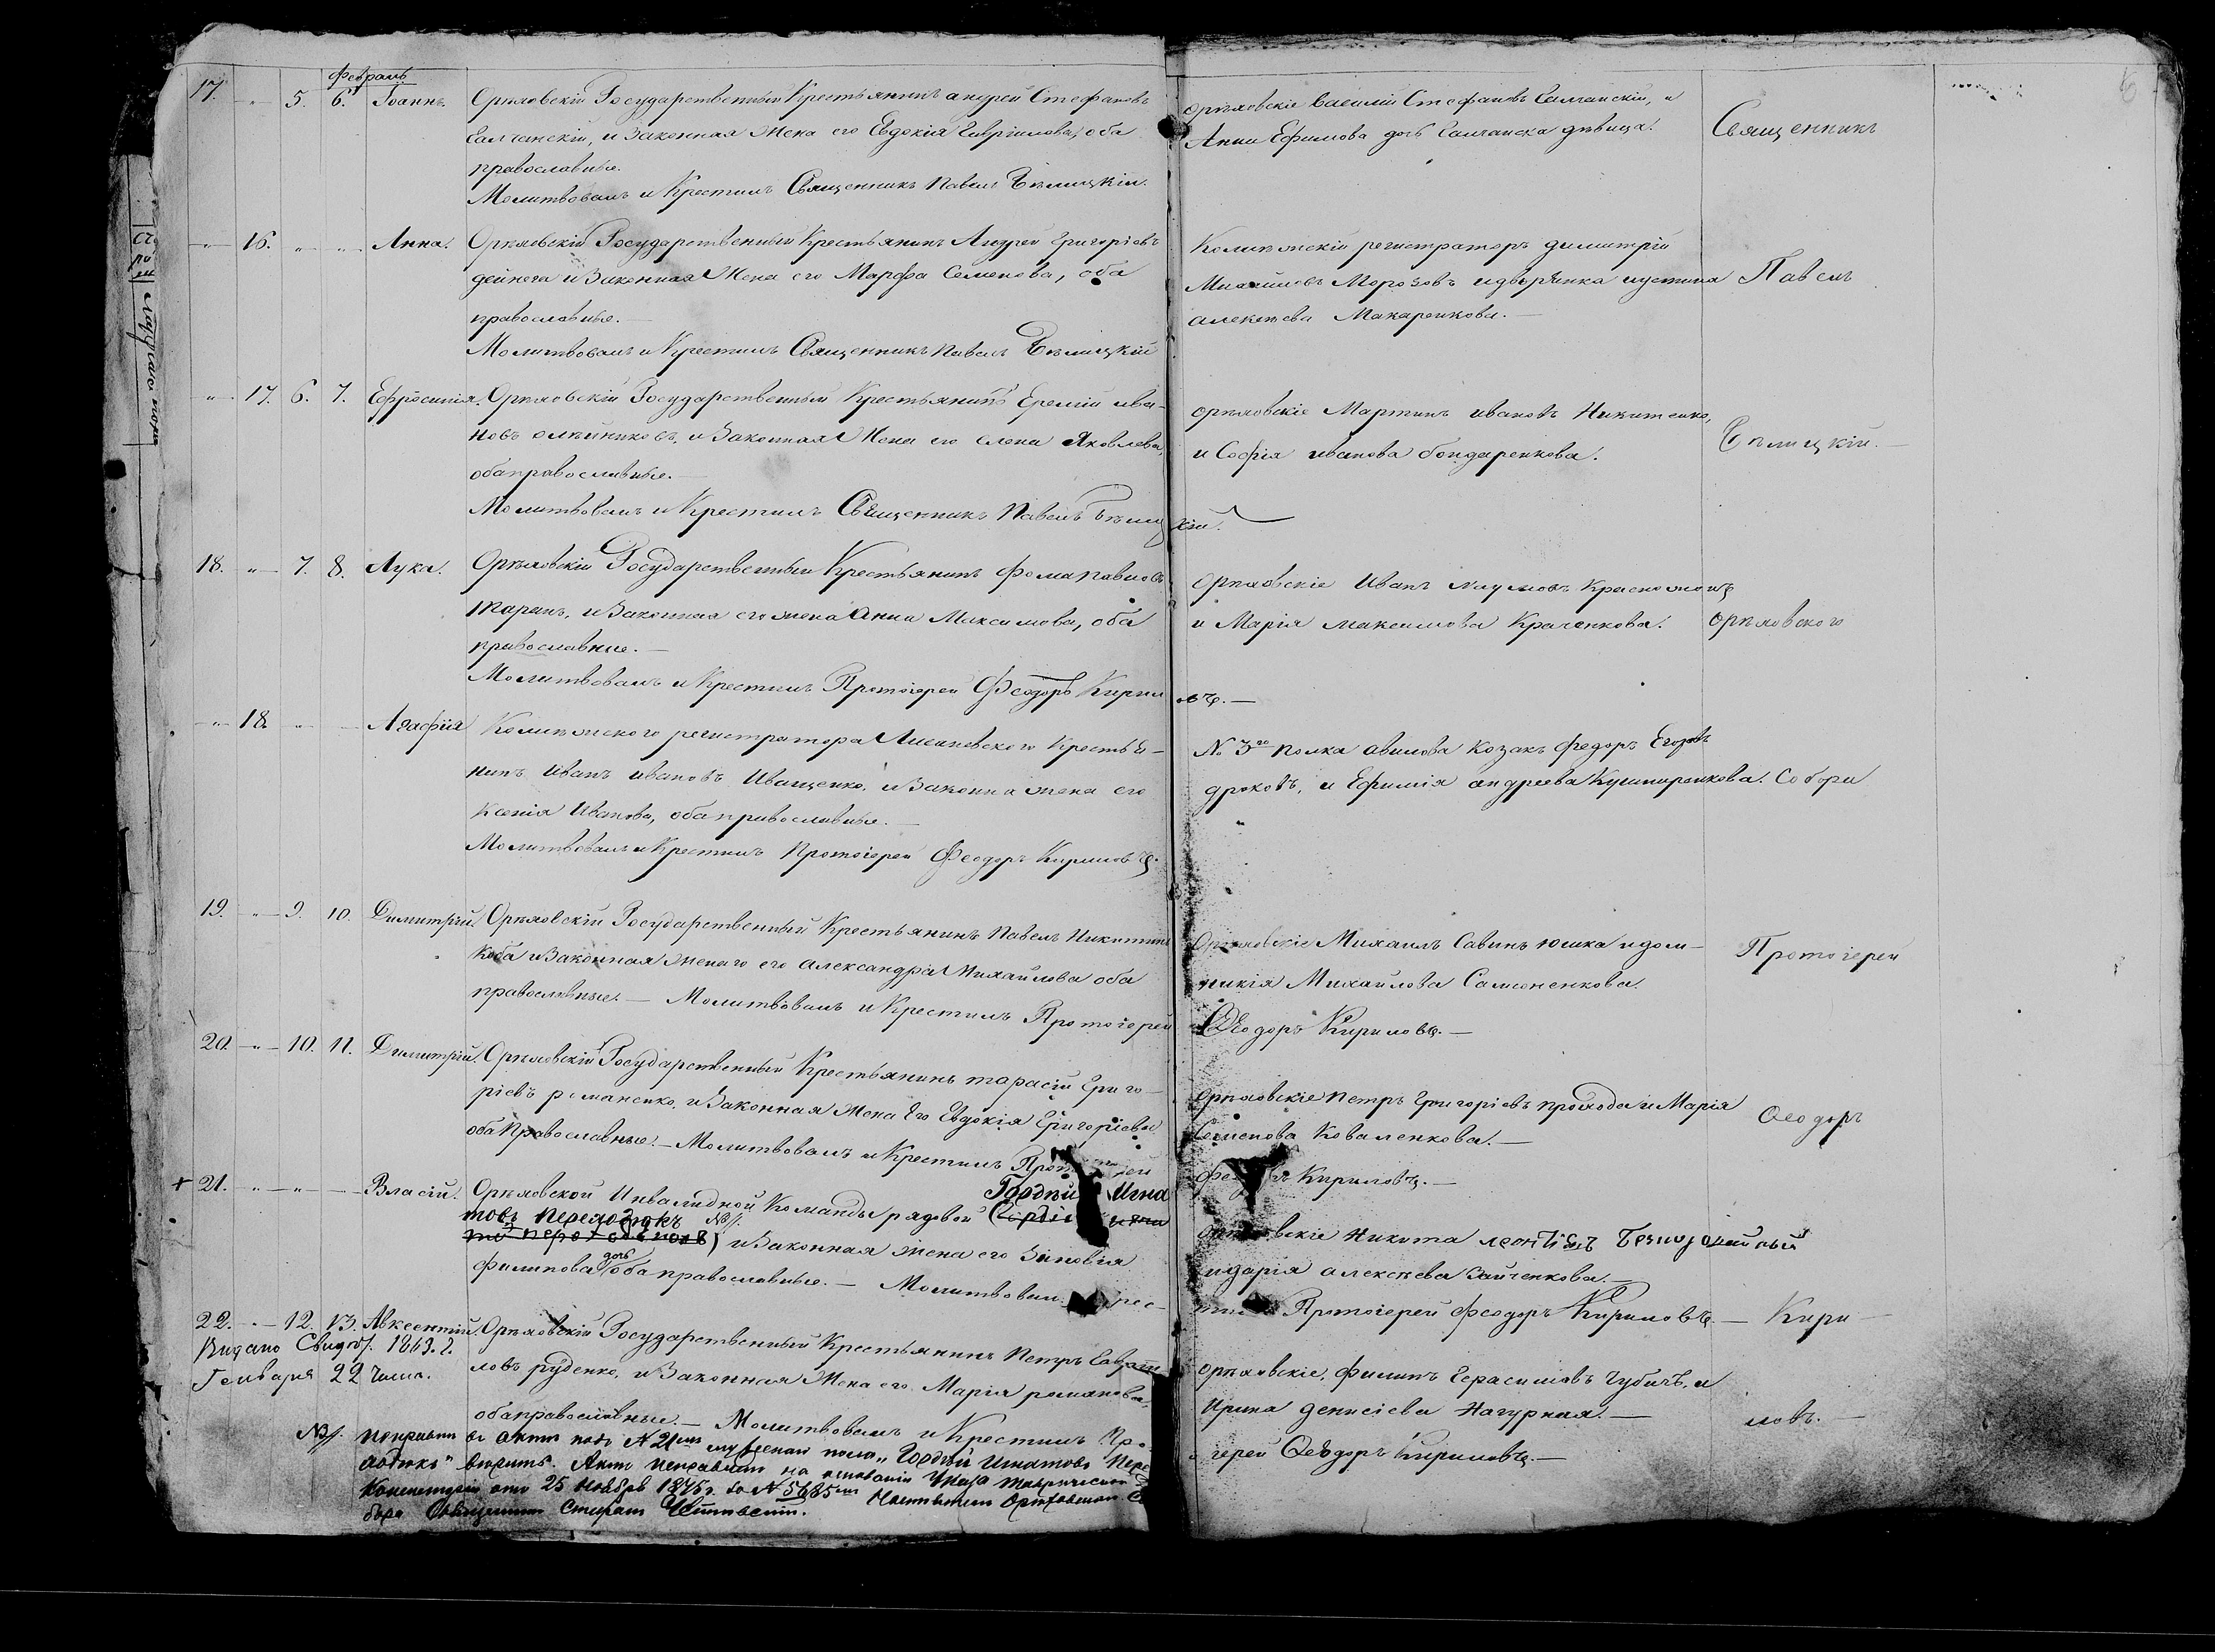 Февраль
17. " 5. 6. Іоаннъ. Орѣховскій Государственный Крестьянинъ андрей Стефановъ
Салчанскій, и Законная Жена его Евдокія Гавріилова, оба
православные.
Молитвовалъ и Крестилъ Священникъ Павелъ Бѣлицкій.
орѣховскіе Василій Стефановъ Салчанскій, и
Анна Ефимова дочь Салчанска дѣвица.
Священникъ
" 16. " " Анна. Орѣховскій Государственный Крестьянинъ Андрей Григоріевъ
дейнега и Законная Жена его Марфа Семенова, оба
православные.
Молитвовалъ и Крестилъ Священникъ Павелъ Бѣлицкій
Колиѣжскій регистраторъ димитрій
Михайловъ Морозовъ и дворянка иустина
алексѣева Макаренкова.
Павелъ
" 17. 6. 7. Ефросинія. Орѣховскій Государственный Крестьянинъ Еремій ива-
новъ олѣйниковъ, и Законная Жена его елена Яковлева,
оба православные.
Молитвовалъ и Крестилъ Священникъ Павелъ Бѣлицкій.
орѣховскіе Мартинъ ивановъ Никитенко,
и Софія иванова бондаренкова.
Бѣлицкій.
18. " 7. 8. Лука. Орѣховскій Государственный Крестьянинъ Фома павловъ
таранъ, и Законная его жена Анна Максимова, оба
православные.
Молитвовалъ и Крестилъ Протоіерей Феодоръ Кириловъ.
Орѣховскіе Иванъ наумовъ
и Марія максимова Краченкова.
орѣховскаго
" 18. " Агафія Колиѣжского регистратора Лисаневского Крестья-
нинъ Иванъ ивановъ Иващенко, и Законна жена его
Ксенія Иванова, оба православные.
Молитвовалъ и Крестилъ Протоіерей Феодоръ Кириловъ.
№ 3го полка авилова Козакъ Федоръ Егоровъ
дроковъ, и Ефимія андреева Кушниренкова.
Собора
19. " 9. 10. Димитрій. Орѣховскій Государственный Крестьянинъ Павелъ Никитинъ
Коба и Законная женаго его александра Михайлова оба
православные. — Молитвовалъ и Крестилъ Протоіерей
Орѣховскіе Михаилъ Савинъ юшка и дом-
никія Михайлова Самоненкова.
Феодоръ Кириловъ.
Протоіерей
20. " 10. 11. Димитрій. Орѣховскій Государственный Крестьянинъ тарасій Григо-
ріевъ романенко, и Законная Жена Его Евдокія Григоріева
оба Православные. — Молитвовалъ и Крестилъ
Орѣховскіе петръ Григоріевъ прохода и Марія
Семенова Коваленкова.
Кириловъ.
Феодоръ
+ 21. " " Власій. Орѣховской Инвалидной Команды рядовой Гордій Игна
товъ
и Законная жена его Зиновія
филипова дочь оба православные. — Молитвовалъ
Никита леонтіевъ
и дарія алексѣева Зайченкова.
Протоіерей Феодоръ Кириловъ.
22. " 12. 13. Авксентій. Орѣховскій Государственный Крестьянинъ Петръ
ловъ руденко, и Законная Жена его Марія романова
оба православные. — Молитвовалъ и Крестилъ Про-
орѣховскіе, филипъ Герасимовъ Чубичъ, и
Ирина денисіева Нагурная.
іерей Феодоръ Кириловъ.
Кири-
ловъ.
Видано Свидѣт. 1863. г.
Генваря 22 числа.
въ актѣ подъ № 21мъ „Гордій Игнатовъ Пере
вѣрить. Актъ исправленъ на основаніи Указа Таврической
Консисторіи отъ 25 Ноября 1876 г. за № 5685мъ
бора Священникъ Стефанъ